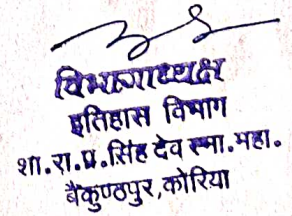 विभागाध्यक्ष
इतिहास विभाग
शा.रा.प्र.सिंह देव स्ना.महा.
बैकुण्ठपुर,कोरिया